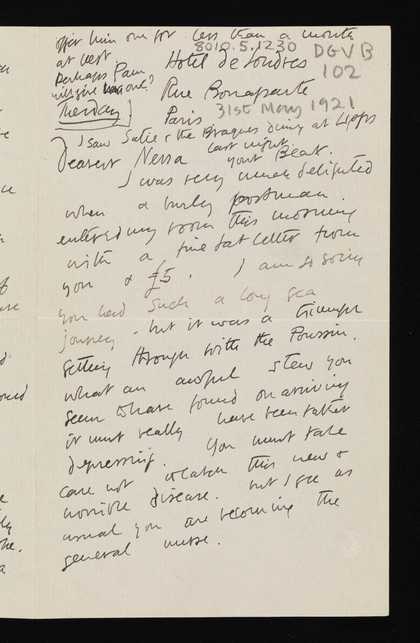 offer him one for less than a month
at least
8010.5.1230
DGVB
102
Perhaps Pam
will give him one?
Hotel de Londres
Rue Bonaparte
Tuesday
Paris
31st May 1921
I saw Satie & the Braques dining at Lipps
last night.
your Bear.
Dearest Nessa
I was very much delighted
when a burly postman
entered my room this morning
with a fine fat letter from
you & £5. I am so sorry
you had such a long sea
journey. but it was a triumph
getting through with the Poussin.
what an awful stew you
seem to have found on arriving
it must really have been rather
depressing. You must take
care not to catch this new &
horrible disease. but I see as
usual you are becoming the
general nurse.